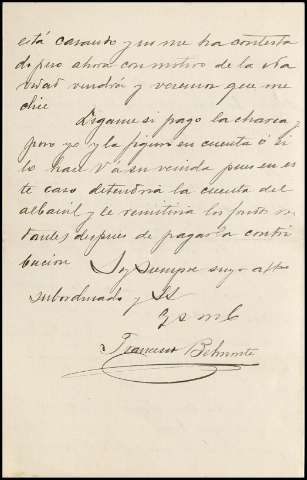 está casando y no me ha contesta
do, pero ahora con motivo de la Na
vidad vendrá y veremos que me
dice
Digame si pago la
pero yo y la figuro en cuenta ó si
lo hace V a su venida pues en es
te caso detendria la cuenta del
albañil y le remitiria los fondos res
tantes despues de pagar la contri
bucion Soy siempre suyo affmo
subordinado y SS
q s m b
Francisco Belmonte